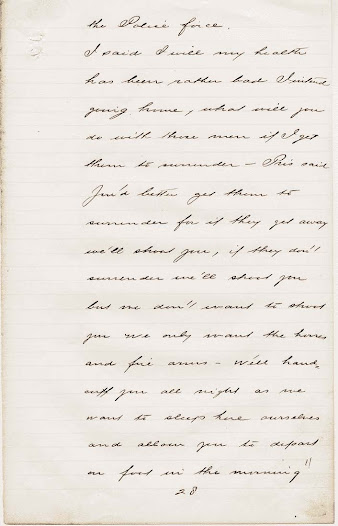 the Police force.
I said I will my health
has been rather bad I intend
going home, what will you
do with those men if I get
them to surrender — This said
You'd better get them to
surrender for if they get away
we'll shoot you, if they don't
surrender we'll shoot you
but we don't want to shoot
you we only want the horses
and fire arms — We'll hand-
cuff you all night as we
want to sleep here ourselves
and allow you to depart
on foot in the morning"
28